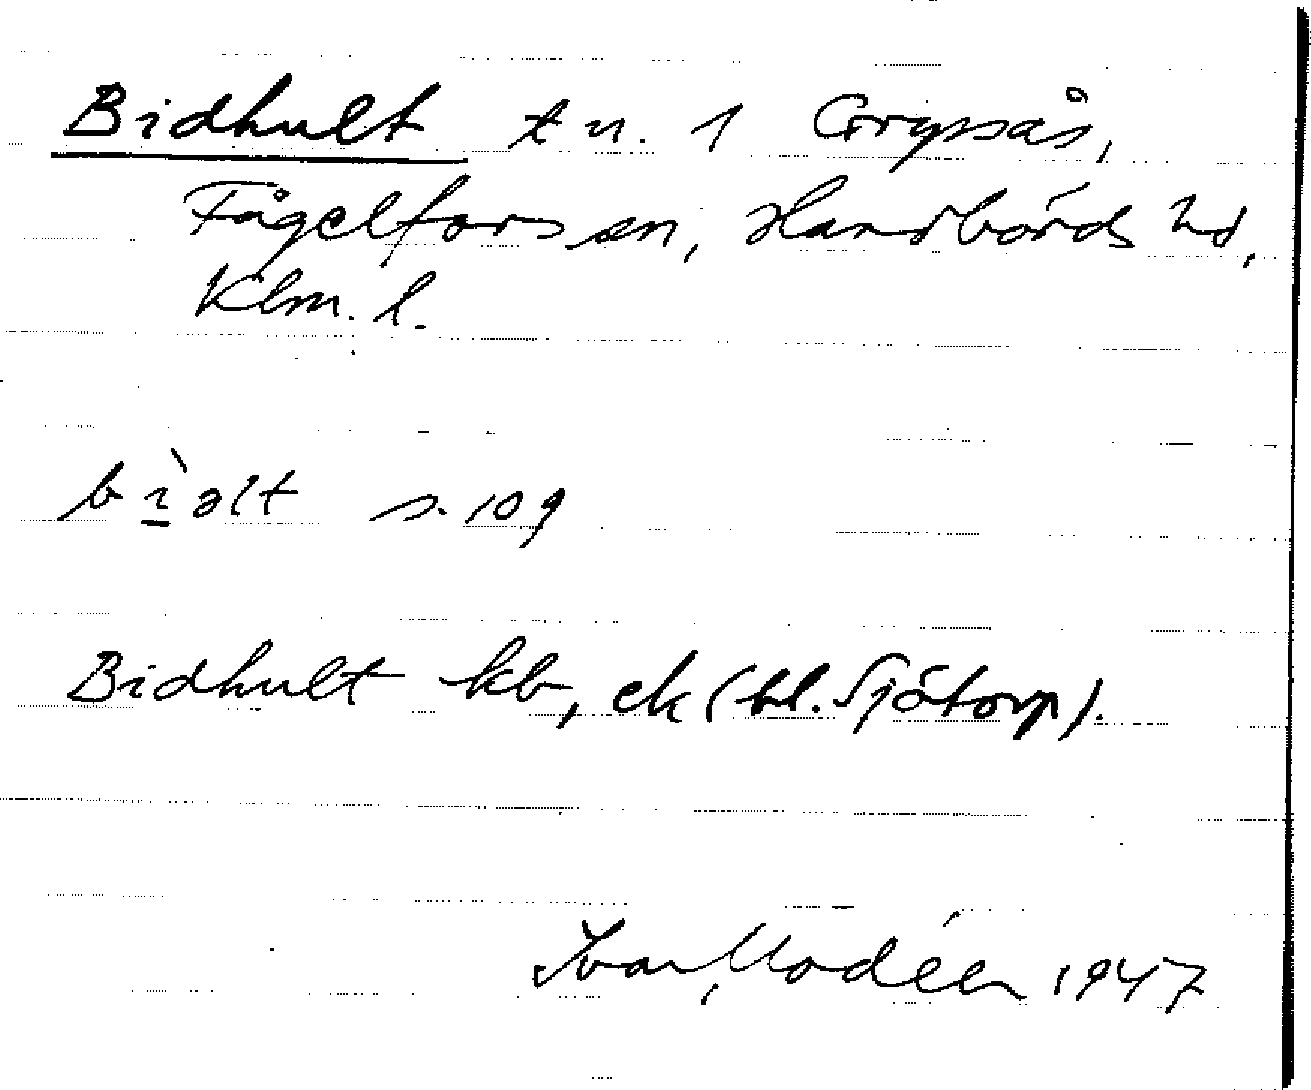 Bidhult t u. 1 Gryssås,
Fågelfors sn, Handbörds hd,
Klm. l.
bìəlt s. 109
Bidhult kb, ek (bl. Sjötorp).
Ivar Modéer 1947